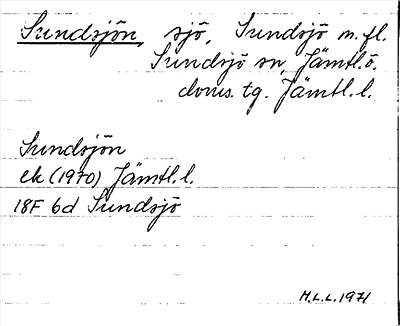 Sundsjön, sjö, Sundsjö m.fl.
Sundsjö sn, Jämtl.ö.
doms. tg. Jämtl.l.
Sundsjön
ek (1970) Jämtl.l.
18F 6d Sundsjö
H.L.L. 1971